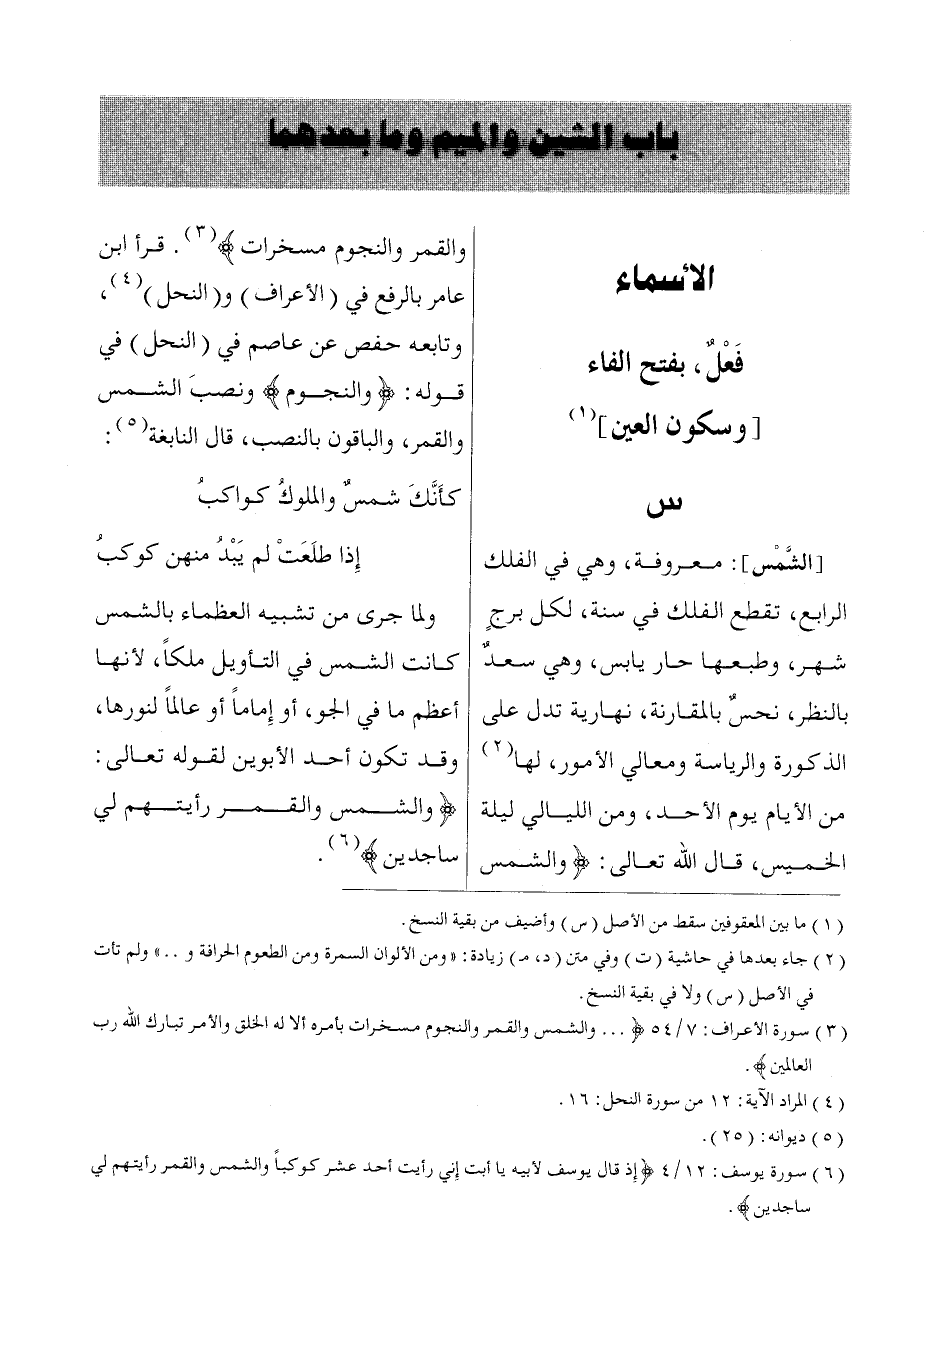 باب الشين والميم وما بعدهما
الأسماء
فَعْلٌ، بفتح الفاء
[وسكون العين](١)
س
[الشَّمْس]: معروفة، وهي في الفلك
الرابع، تقطع الفلك في سنة، لكل برجٍ
شهر، وطبعها حار يابس، وهي سعدٌ
بالنظر، نحسٌ بالمقارنة، نهارية تدل على
الذكورة والرياسة ومعالي الأمور، لها(٢)
من الأيام يوم الأحد، ومن الليالي ليلة
الخميس، قال الله تعالى: ﴿والشمس
والقمر والنجوم مسخرات﴾(٣). قرأ ابن
عامر بالرفع في (الأعراف) و(النحل)(٤)،
وتابعه حفص عن عاصم في (النحل) في
قوله: ﴿والنجوم﴾ ونصبَ الشمس
والقمر، والباقون بالنصب، قال النابغة(٥):
كأَنَّكَ شمسٌ والملوكُ كواكبُ
إِذا طلَعَتْ لم يَبْدُ منهن كوكبُ
ولما جرى من تشبيه العظماء بالشمس
كانت الشمس في التأويل ملكاً، لأنها
أعظم ما في الجو، أو إِماماً أو عالماً لنورها،
وقد تكون أحد الأبوين لقوله تعالى:
﴿والشمس والقمر رأيتهم لي
ساجدين﴾(٦).
(١) ما بين المعقوفين سقط من الأصل (س) وأضيف من بقية النسخ.
(٢) جاء بعدها في حاشية (ت) وفي متن (د، م) زيادة: «ومن الألوان السمرة ومن الطعوم الحرافة و ..» ولم تأت
في الأصل (س) ولا في بقية النسخ.
(٣) سورة الأعراف: ٧/ ٥٤ ﴿... والشمس والقمر والنجوم مسخرات بأمره ألا له الخلق والأمر تبارك الله رب
العالمين﴾.
(٤) المراد الآية: ١٢ من سورة النحل: ١٦.
(٥) ديوانه: (٢٥).
(٦) سورة يوسف: ١٢/ ٤ ﴿إذ قال يوسف لأبيه يا أبت إني رأيت أحد عشر كوكباً والشمس والقمر رأيتهم لي
ساجدين﴾.